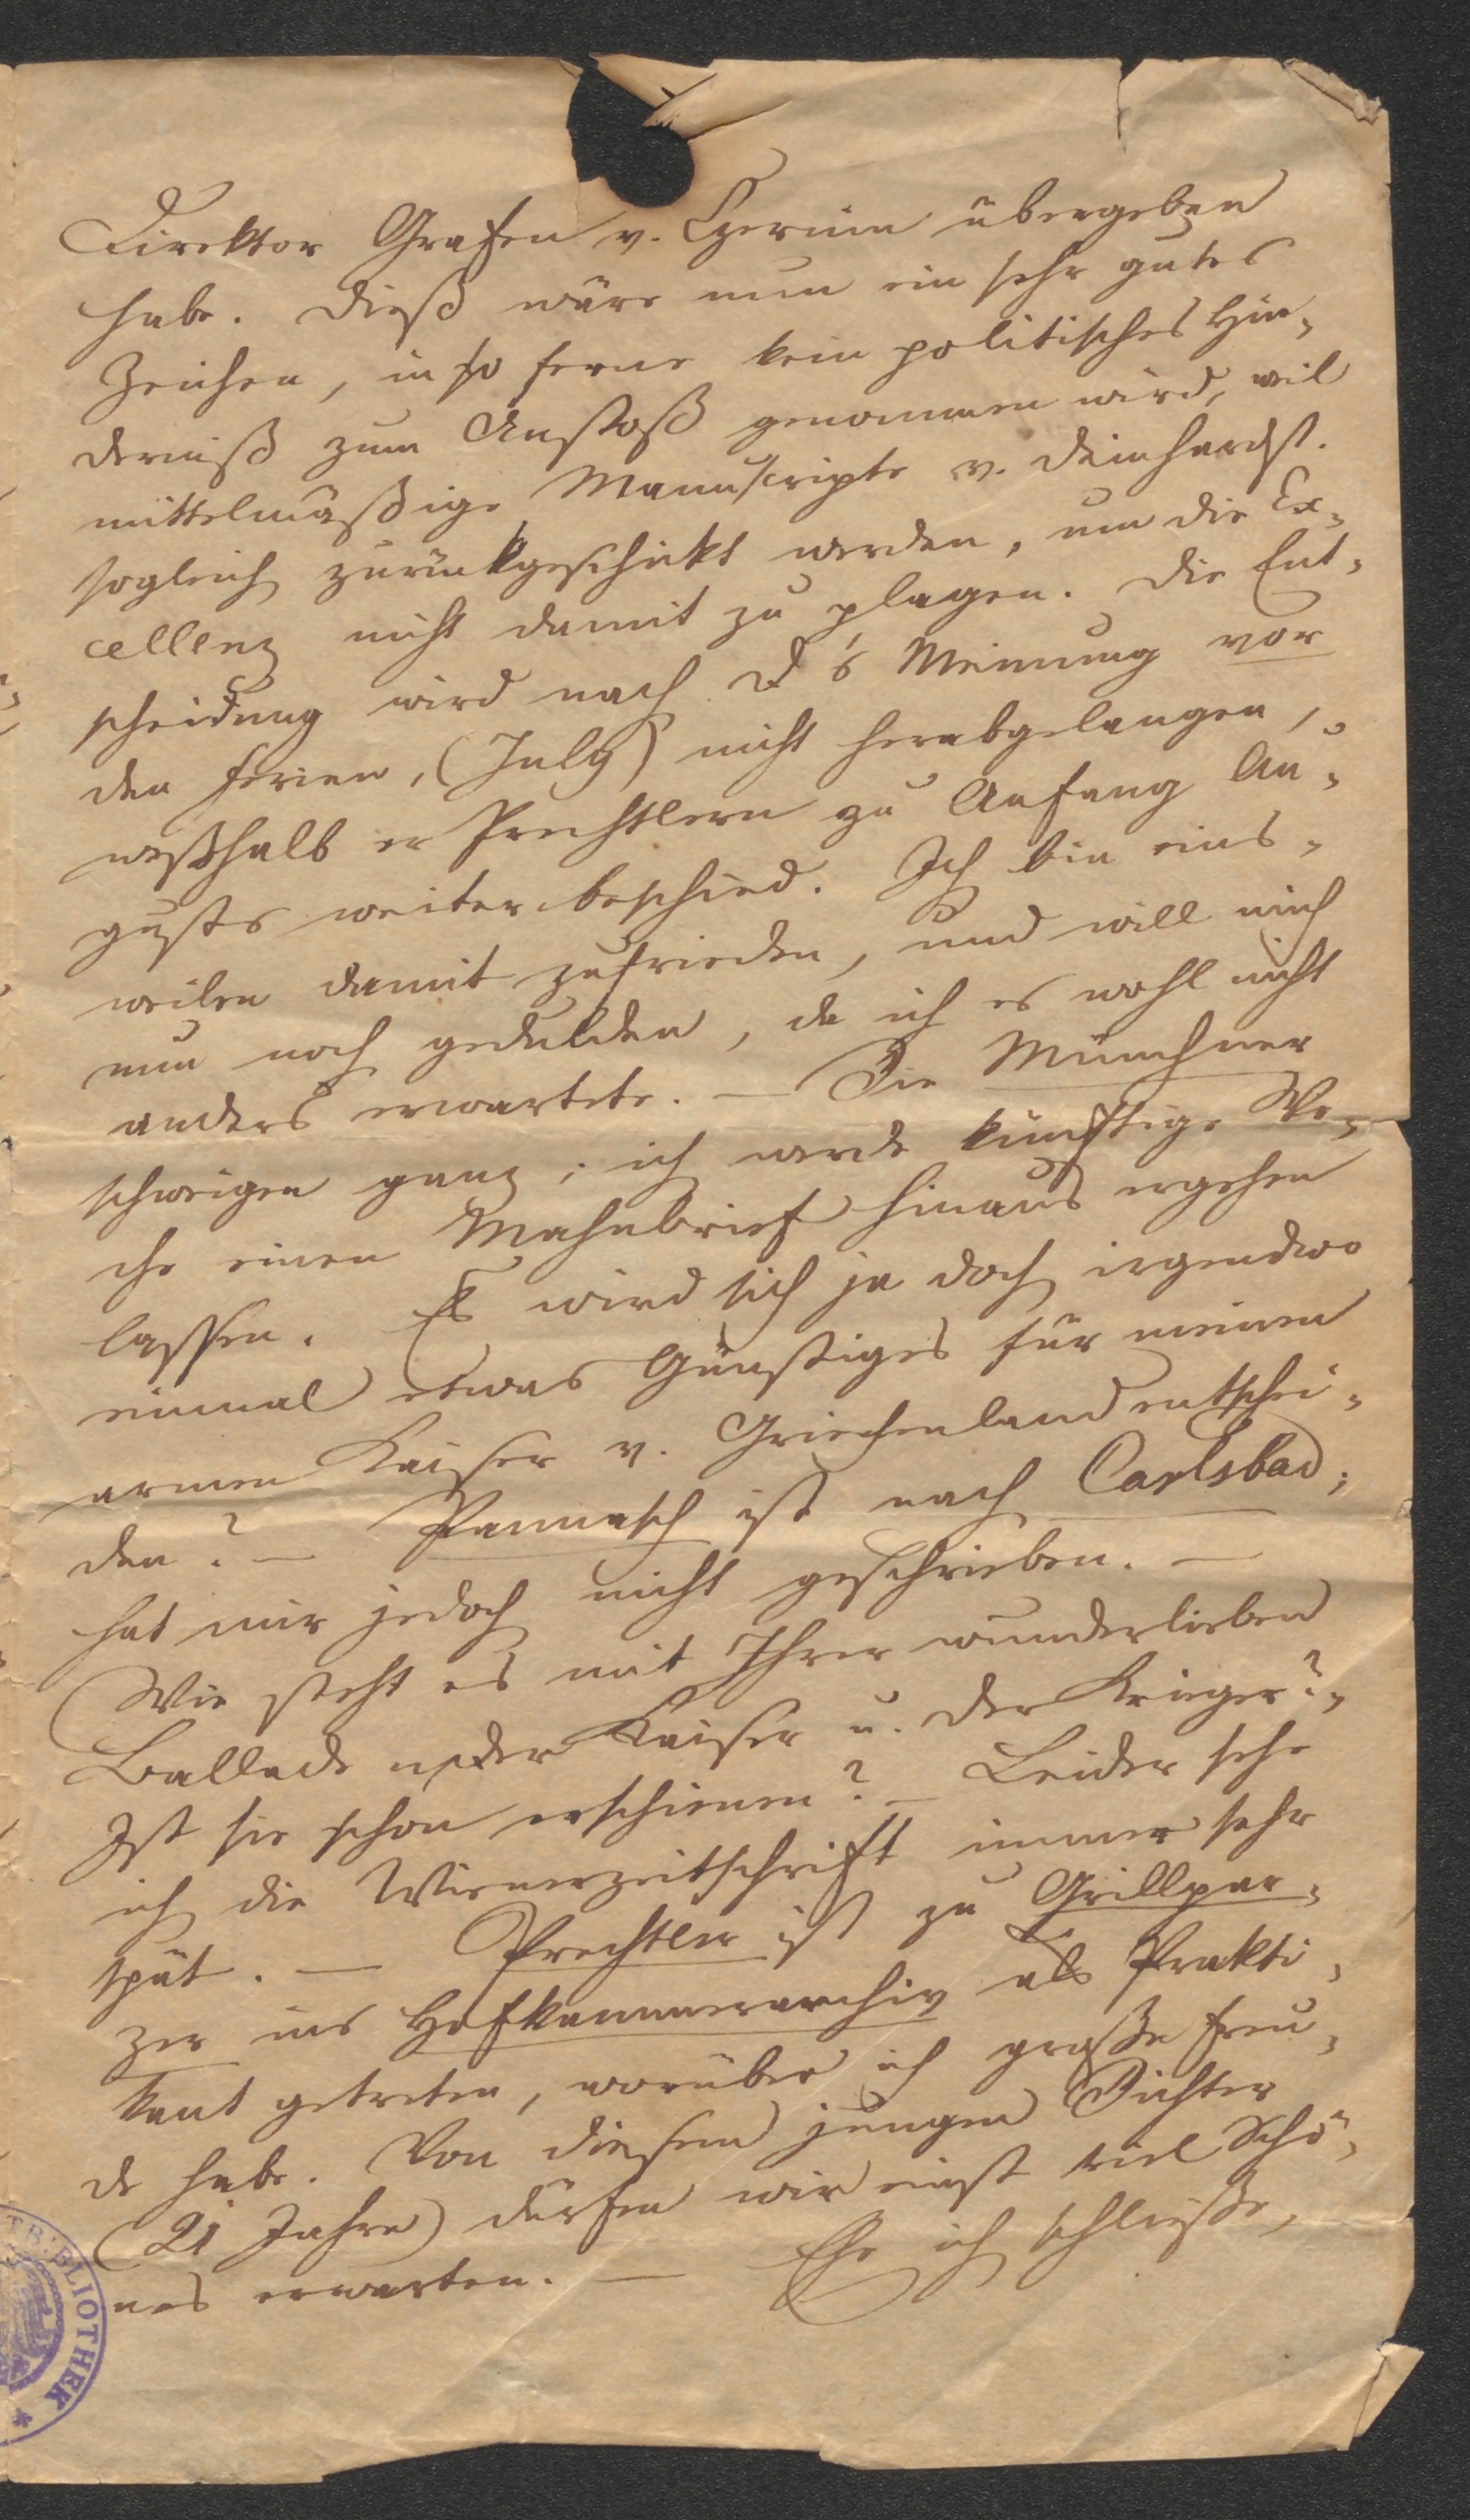 Direktor Grafen v. Czernin übergeben
habe. Dieß wäre nun ein sehr gutes
Zeichen, in so ferne kein politisches Hin-
derniß zum Anstoß genommen wird, weil
mittelmäßige Manuscripte v. Deinhardst.
sogleich zurückgeschickt werden, um die Ex-
cellenz nicht damit zu plagen. Die Ent-
scheidung wird nach D's Meinung vor
den Ferien, (July) nicht herabgelangen,
weßhalb er Prechtlern zu Anfang Au-
gusts weiter beschied. Ich bin eins-
weilen damit zufrieden, und will mich
nun noch gedulden, da ich es wohl nicht
anders erwartete. — Die Münchner
schweigen ganz; ich werde künftige Wo-
che einen Mahnbrief hinaus ergehen
lassen. Es wird sich ja doch irgendwo
einmal etwas Günstiges für meinen
armen Kaiser v. Griechenland entschei-
den? — Pannasch ist nach Carlsbad;
hat mir jedoch nicht geschrieben. —
Wie steht es mit Ihrer wunderlieben
Ballade „der Kaiser u. der Krieger?"
Ist sie schon erschienen? — Leider sehe
ich die Wienerzeitschrift immer sehr
spät. — Prechtler ist zu Grillpar-
zer ins Hofkammerarchiv als Prakti-
kant getreten, worüber ich große Freu-
de habe. Von diesem jungen Dichter
(21 Jahre) dürfen wir einst viel Schö-
nes erwarten. — Ehe ich schließe,
BIBLIOTHEK